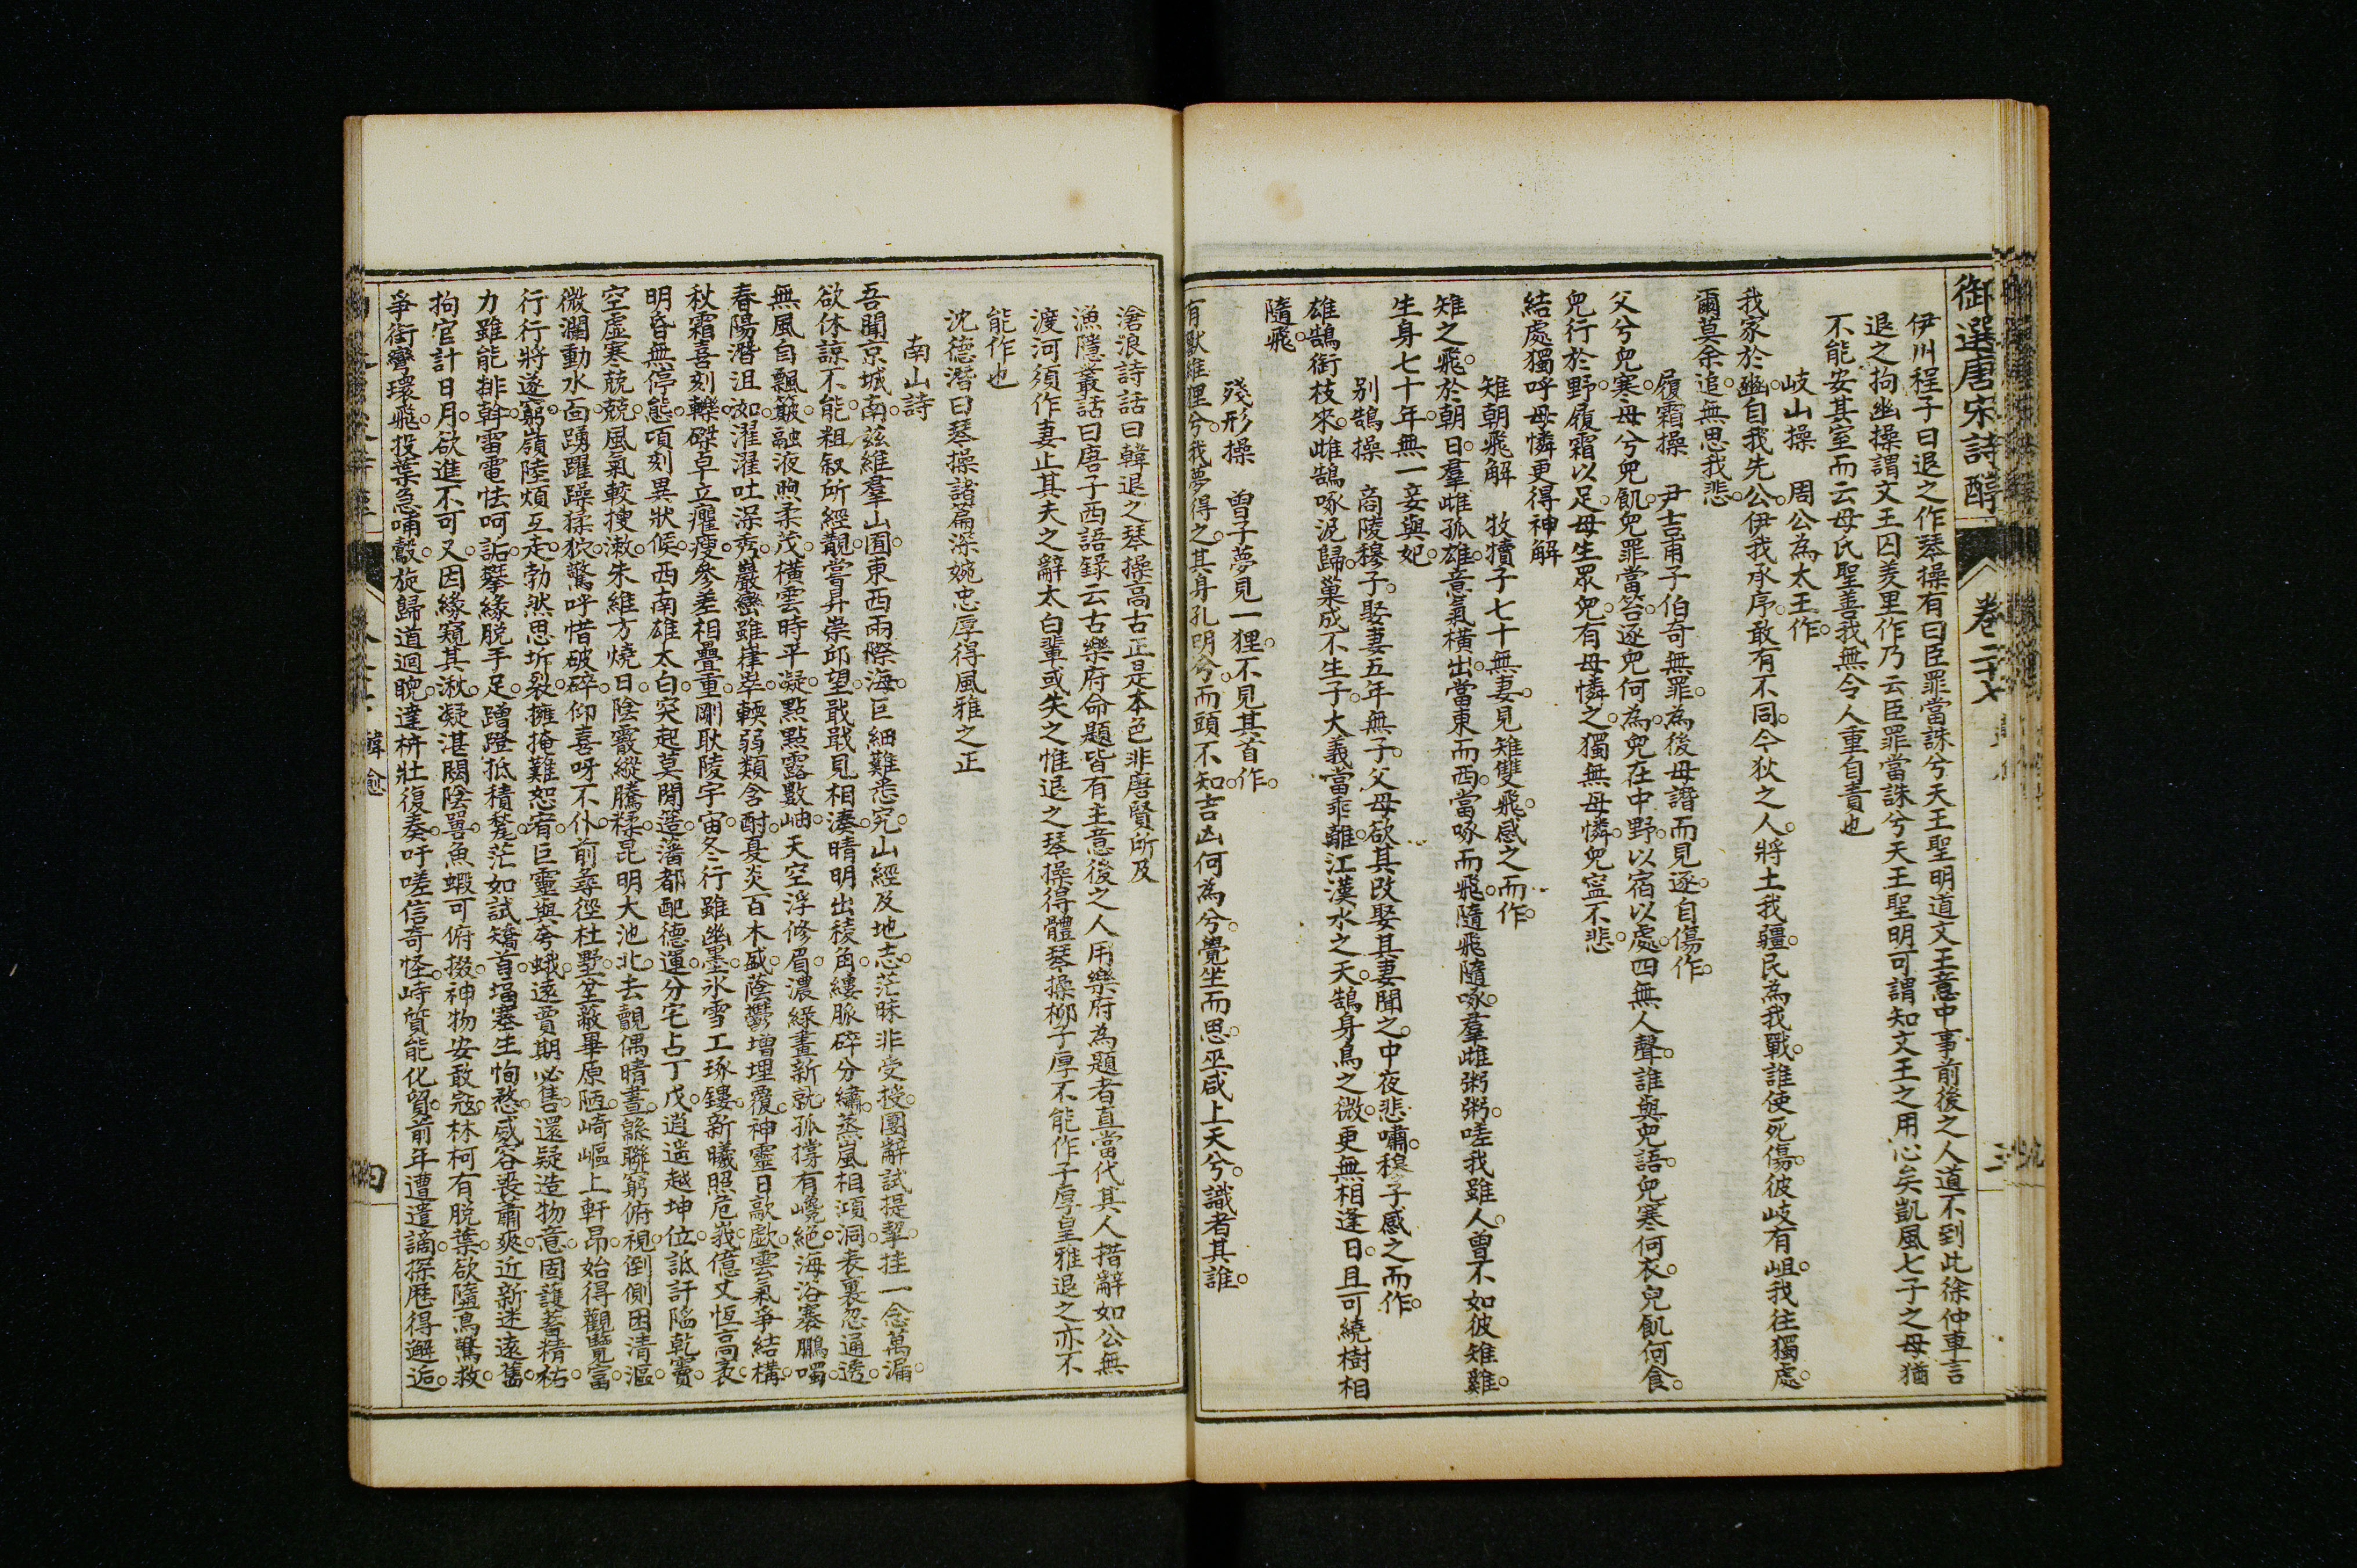 御選唐宋詩醇 卷二十七 三
伊川程子曰退之作琴操有曰臣罪當誅兮天王聖明道文王意中事前後之人道不到此徐仲車言
退之拘幽操謂文王囚羑里作乃云臣罪當誅兮天王聖明可謂知文王之用心矣凱風七子之母猶
不能安其室而云母氏聖善我無令人重自責也
岐山操 周公為太王作
我家於豳自我先公伊我承序敢有不同今狄之人將土我疆民為我戰誰使死傷彼岐有岨我往獨處
爾莫余追無思我悲
履霜操 尹吉甫子伯奇無罪為後母譖而見逐自傷作
父兮兒寒母兮兒飢兒罪當笞逐兒何為兒在中野以宿以處四無人聲誰與兒語兒寒何衣兒飢何食
兒行於野履霜以足母生眾兒有母憐之獨無母憐兒寧不悲
結處獨呼母憐更得神解
雉朝飛解 牧犢子七十無妻見雉雙飛感之而作
雉之飛於朝日羣雌孤雄意氣橫出當東而西當啄而飛隨飛隨啄羣雌粥粥嗟我雖人曾不如彼雉雞
生身七十年無一妾與妃
別鵠操 商陵穆子娶妻五年無子父母欲其改娶其妻聞之中夜悲嘯穆子感之而作
雄鵠銜枝來雌鵠啄泥歸巢成不生子大義當乖離江漢水之天鵠身鳥之微更無相逢日且可繞樹相
隨飛
殘形操 曾子夢見一狸不見其首作
有獸維狸兮我夢得之其身孔明兮而頭不知吉凶何為兮覺坐而思巫咸上天兮識者其誰
滄浪詩話曰韓退之琴操高古正是本色非唐賢所及
漁隱叢話曰唐子西語錄云古樂府命題皆有主意後之人用樂府為題者直當代其人措辭如公無
渡河須作妻止其夫之辭太白輩或失之惟退之琴操得體琴操柳子厚不能作子厚皇雅退之亦不
能作也
沈德潛曰琴操諸篇深婉忠厚得風雅之正
南山詩
吾聞京城南茲維羣山囿東西兩際海巨細難悉究山經及地志茫昧非受授團辭試提挈挂一念萬漏
欲休諒不能粗敘所經覯嘗昇崇邱望戢戢見相湊晴明出稜角縷脈碎分繡蒸嵐相澒洞表裏忽通透
無風自飄簸融液煦柔茂橫雲時平凝點點露數岫天空浮修眉濃綠畫新就孤撐有巉絕海浴褰鵬噣
春陽潛沮洳濯濯吐深秀巖巒雖嵂崒輭弱類含酎夏炎百木盛蔭鬱增埋覆神靈日歊歔雲氣爭結構
秋霜喜刻轢磔卓立癯瘦參差相疊重剛耿陵宇宙冬行雖幽墨冰雪工琢鏤新曦照危峩億丈恆高袤
明昏無停態頃刻異狀候西南雄太白突起莫間簉藩都配德運分宅占丁戊逍遙越坤位詆訐陷乾竇
空虛寒兢兢風氣較搜漱朱維方燒日陰霰縱騰糅昆明大池北去覿偶晴晝緜聯窮俯視倒側困清漚
微瀾動水面踴躍躁猱狖驚呼惜破碎仰喜呀不仆前尋徑杜墅坌蔽畢原陋崎嶇上軒昂始得觀覽富
行行將遂窮嶺陸煩互走勃然思坼裂擁掩難恕宥巨靈與夸蛾遠賈期必售還疑造物意固護蓄精祐
力雖能排斡雷電怯呵詬攀緣脫手足蹭蹬抵積甃茫如試矯首堛塞生怐愗威容喪蕭爽近新迷遠舊
拘官計日月欲進不可又因緣窺其湫凝湛閟陰嘼魚蝦可俯掇神物安敢寇林柯有脫葉欲墮鳥驚救
爭銜彎環飛投棄急哺鷇旋歸道迴睨達枿壯復奏吁嗟信奇怪峙質能化貿前年遭遣謫探歷得邂逅
韓愈 四